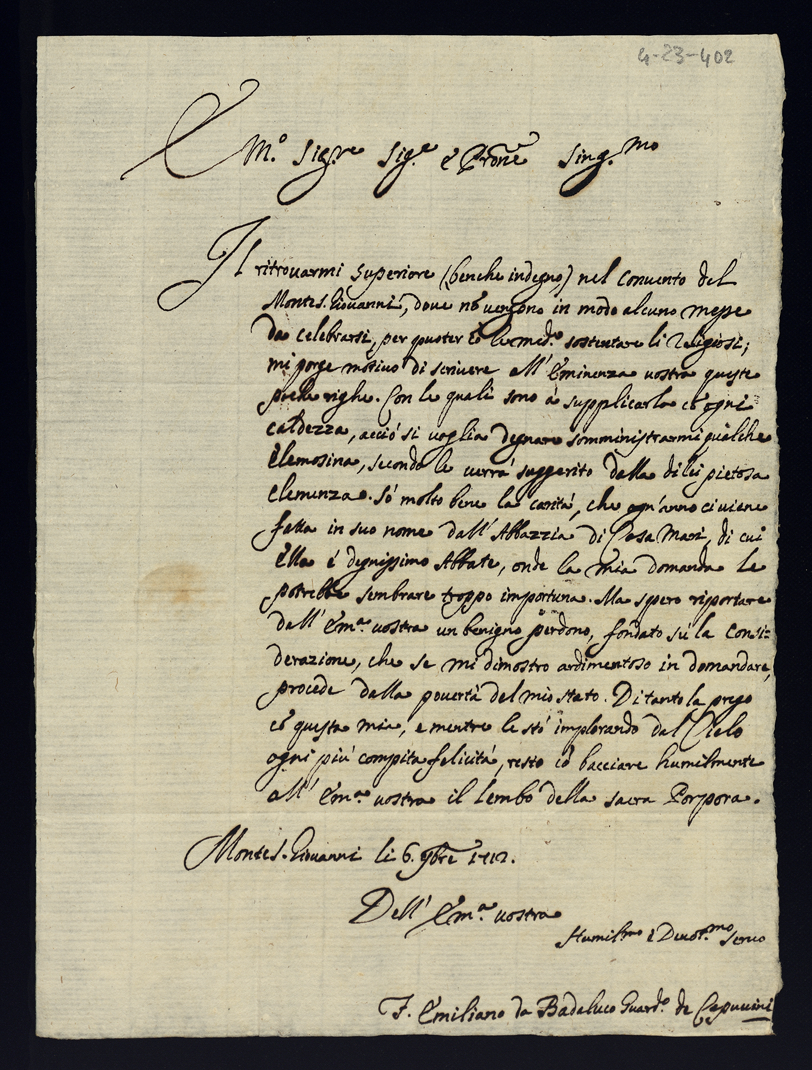 4-23-402
Em.º Sig.re Sig.e è Prõne Sing.mo
Il ritrouarmi Superiore (benche indegno) nel Conuento del
Monte S. Giouanni, doue nõ uengono in modo alcuno messe
da celebrarsi, per poter cõ le med.e sostentare li Religiosi;
mi porge motiuo di scriuere all'Eminenza uostra queste
poche righe. Con le quali sono à supplicarla cõ ogni
caldezza, acciò si uoglia degnare somministrarmi qualche
elemosina, secondo le uerrà suggerito dalla di lei pietosa
clemenza. Sò molto bene la carità, che ogn'anno ci uiene
fatta in suo nome dall'Abbazzia di Casa Mari, di cui
ella è degnissimo Abbate, onde la mia domanda le
potrebbe sembrare troppo importuna. Ma spero riportare
dall'Em.a uostra un benigno perdono, fondato sù la consi=
derazione, che se mi dimostro ardimentoso in domandare,
procede dalla pouertà del mio stato. Di tanto la prego
cõ questa mia, e mentre le stò implorando dal Cielo
ogni più compita felicità, resto cõ bacciare humilmente
all'Em.a uostra il lembo della sacra Porpora.
Monte S. Giouanni li 6. 9bre 1712.
Dell'Em.a uostra
Humil.mo è Deuot.mo Seruo
F. Emiliano da Badaluco Guard.o de Capucini